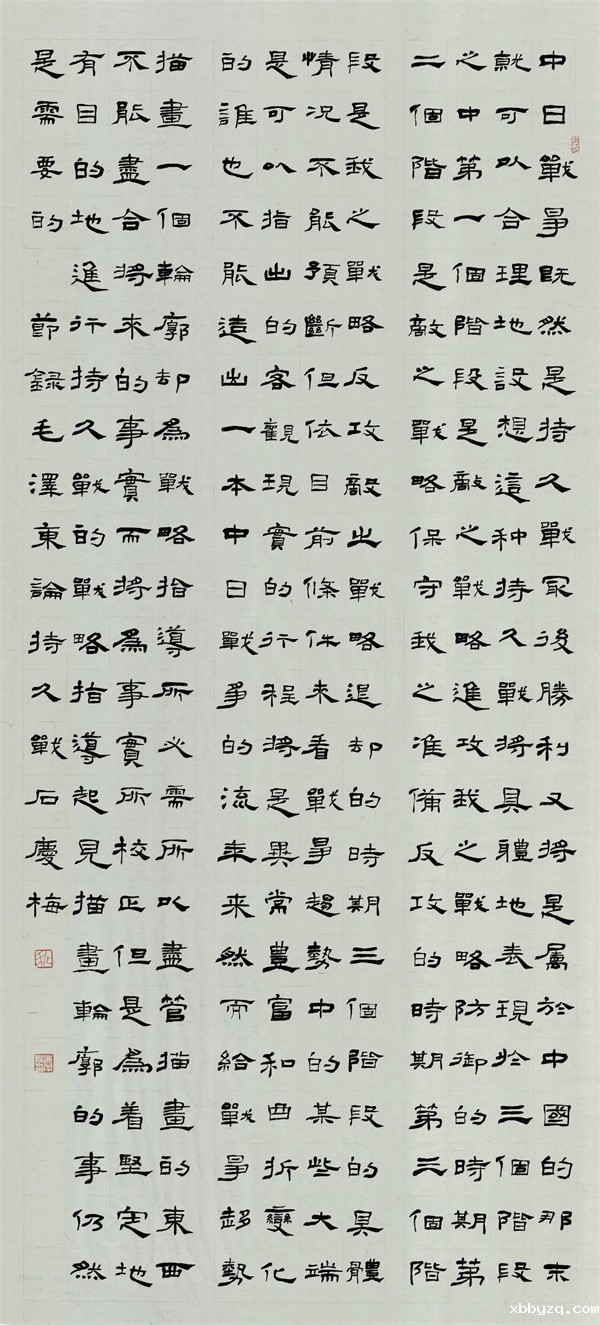 中日戰爭既然是持久戰最後勝利又將是屬於中國的那末
就可以合理地設想這种持久戰將具體地表現於三個階段
之中第一個階段是敵之戰略進攻我之戰略防御的時期第
二個階段是敵之戰略保守我之准備反攻的時期第三個階
段是我之戰略反攻敵之戰略退却的時期三個階段的具體
情况不能預斷但依目前條件來看戰爭趨勢中的某些大端
是可以指出的客觀現實的行程將是異常豊富和曲折變化
的誰也不能造出一本中日戰爭的流年來然而給戰爭趍勢
描畫一個輪廓却爲戰略指導所必需所以盡管描畫的東西
不能盡合將來的事實而將爲事實所校正但是爲着堅定地
有目的地進行持久戰的戰略指導起見描畫輪廓的事仍然
是需要的 節録毛澤東論持久戰石慶梅
xbbyzq.com